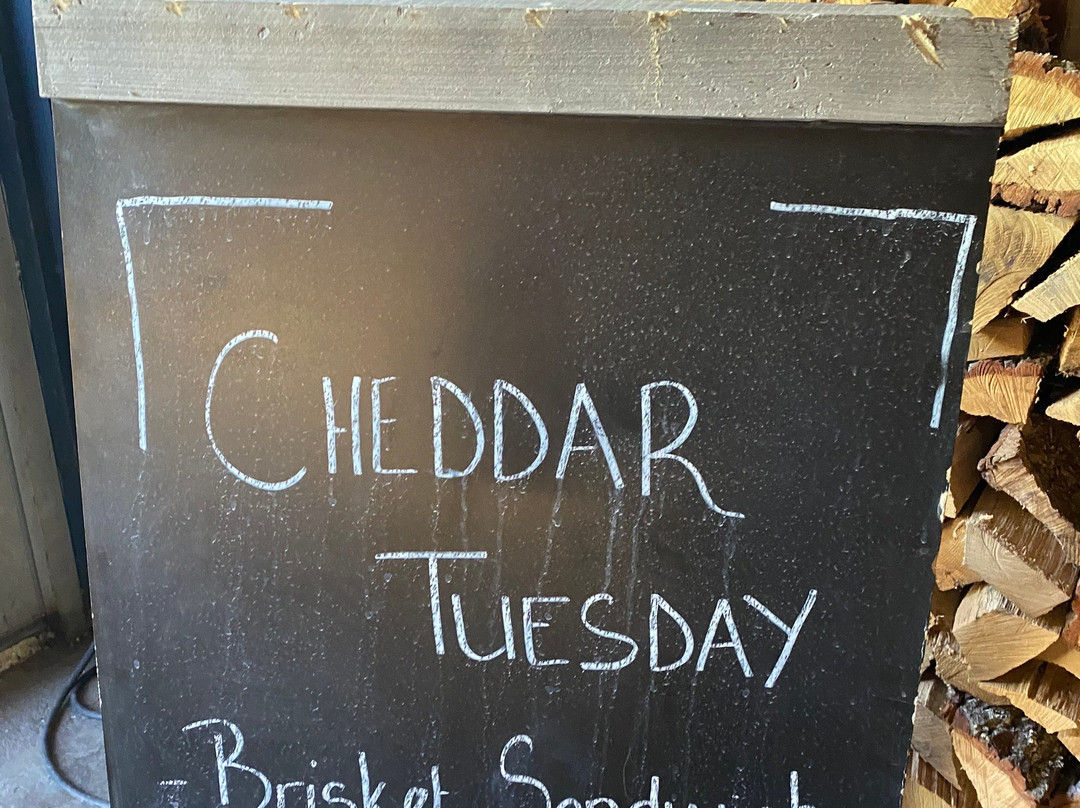 CHEDDAR
TUESDAY
- Brisket Sandwich